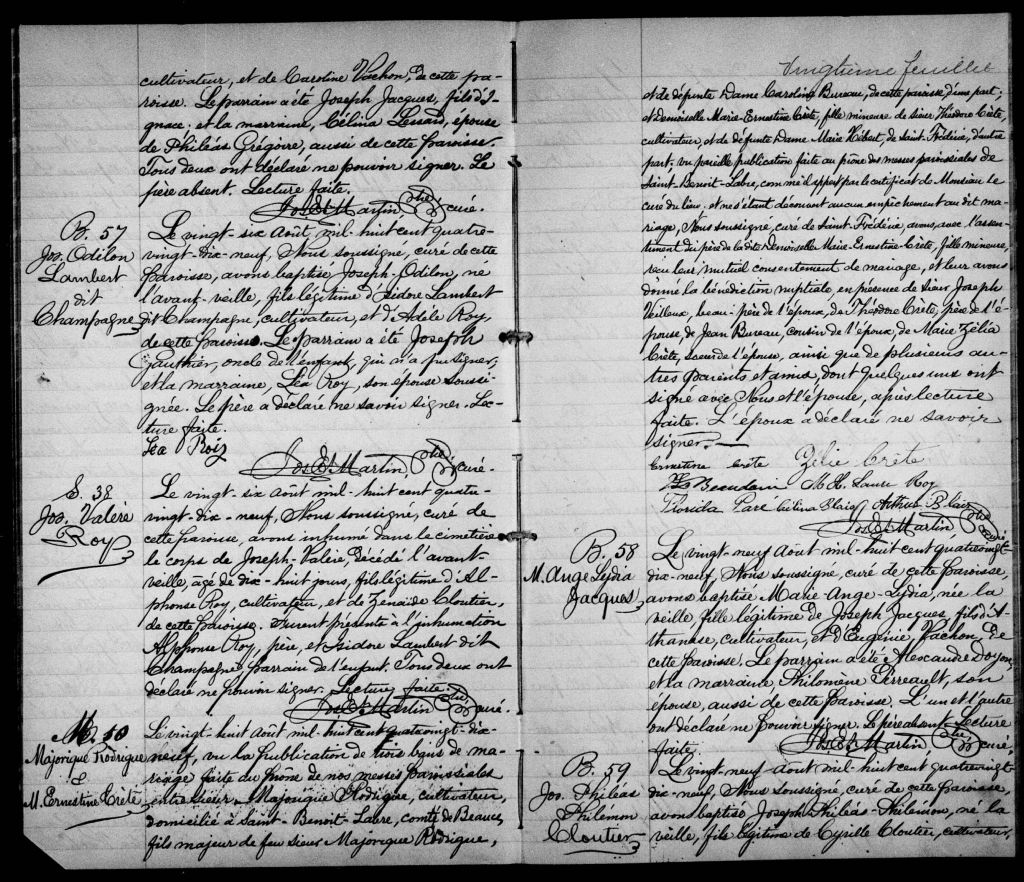 cultivateur, et de Caroline Vachon, de cette pa-
roisse. Le parrain a été Joseph Jacques, fils d'I-
gnace; et la marraine, Célina Lessard, épouse
de Philéas Grégoire, aussi de cette paroisse.
Tous deux ont déclaré ne pouvoir signer. Le
père absent. Lecture faite.
Jos. Martin Ptre curé.
B. 57
Jos. Odilon
Lambert
dit
Champagne
Le vingt-six Août mil-huit cent quatre-
vingt-dix-neuf, Nous soussigné, curé de cette
paroisse, avons baptisé Joseph-Odilon, né
l'avant-veille, fils légitime d'Isidore Lambert
dit Champagne, cultivateur, et d'Adèle Roy,
de cette paroisse. Le parrain a été Joseph
Gauthier, oncle de l'enfant, qui n'a pu signer;
et la marraine, Léa Roy, son épouse soussi-
gnée. Le père a déclaré ne savoir signer. Lec-
ture faite.
Léa Roiz
Jos. Martin Ptre curé.
S. 38
Jos. Valère
Roy
Le vingt-six août mil-huit cent quatre-
vingt-dix-neuf, Nous soussigné, curé de
cette paroisse, avons inhumé dans le cimetière
le corps de Joseph-Valère, décédé l'avant-
veille, agé de dix-huit jours, fils légitime d'Al-
phonse Roy, cultivateur, et de Zénaïde Cloutier,
de cette paroisse. Furent présents à l'inhumation
Alphonse Roy, père, et Isidore Lambert dit
Champagne parrain de l'enfant. Tous deux ont
déclaré ne pouvoir signer. Lecture faite.
Jos. Martin Ptre curé.
M. 10
Majorique Rodrigue
&
M. Ernestine Crête
Le vingt-huit Août mil-huit cent quatrevingt-dix-
neuf, vu la publication de trois bans de ma-
riage faite au prône de nos messes paroissiales
entre Sieur Majorique Rodrigue, cultivateur,
domicilié à Saint-Benoit-Labre, comté de Beauce,
fils majeur de feu Sieur Majorique Rodrigue,
Vingtième feuillet
et de défunte Dame Caroline Bureau, de cette paroisse d'une part;
et Demoiselle Marie-Ernestine Crête, fille mineure de Sieur Théodore Crête,
cultivateur, et de défunte Dame Marie Hébert, de Saint-Frédéric, d'autre
part; vu pareille publication faite au prône des messes paroissiales de
Saint-Benoit-Labre, comme il appert par le certificat de Monsieur le
curé du lieu, et ne s'étant découvert aucun empêchement au dit ma-
riage, Nous soussigné, curé de Saint-Frédéric, avons, avec l'assen-
timent du père de la dite Demoiselle Marie-Ernestine Crête, fille mineure,
reçu leur mutuel consentement de mariage, et leur avons
donné la bénédiction nuptiale en présence de Sieur Joseph
Veilleux, beau-père de l'époux, de Théodore Crête, père de l'é-
pouse, de Jean Bureau, cousin de l'époux, de Marie Zélia
Crête, soeur de l'épouse, ainsi que de plusieurs au-
tres parents et amis, dont quelques uns ont
signé avec Nous et l'épouse, après lecture
faite. L'époux a déclaré ne savoir
signer.
Ernestine Crête Zélie Crête
Beaudoin M. L. Laura Roy
Florida Paré Célina Blais Arthur Blais
Jos. Martin Ptre curé
B. 58
M. Ange Lydia
Jacques
Le vingt-neuf Août mil-huit cent quatrevingt-
dix-neuf, Nous soussigné, curé de cette paroisse,
avons baptisé Marie Ange-Lydia, née la
veille, fille légitime de Joseph Jacques, fils d'A-
thanase, cultivateur, et d'Eugénie Vachon, de
cette paroisse. Le parrain a été Alexandre Doyon,
et la marraine Philomène Perreault, son
épouse, aussi de cette paroisse. L'un et l'autre
ont déclaré ne pouvoir signer. Le père absent. Lecture
faite.
Jos. Martin Ptre curé.
B. 59
Jos. Philéas
Philémon
Cloutier
Le vingt-neuf Août mil-huit cent quatrevingt-
dix-neuf, Nous soussigné, curé de cette paroisse,
avons baptisé Joseph Philéas-Philémon, né la
veille, fils légitime de Cyrille Cloutier, cultivateur,